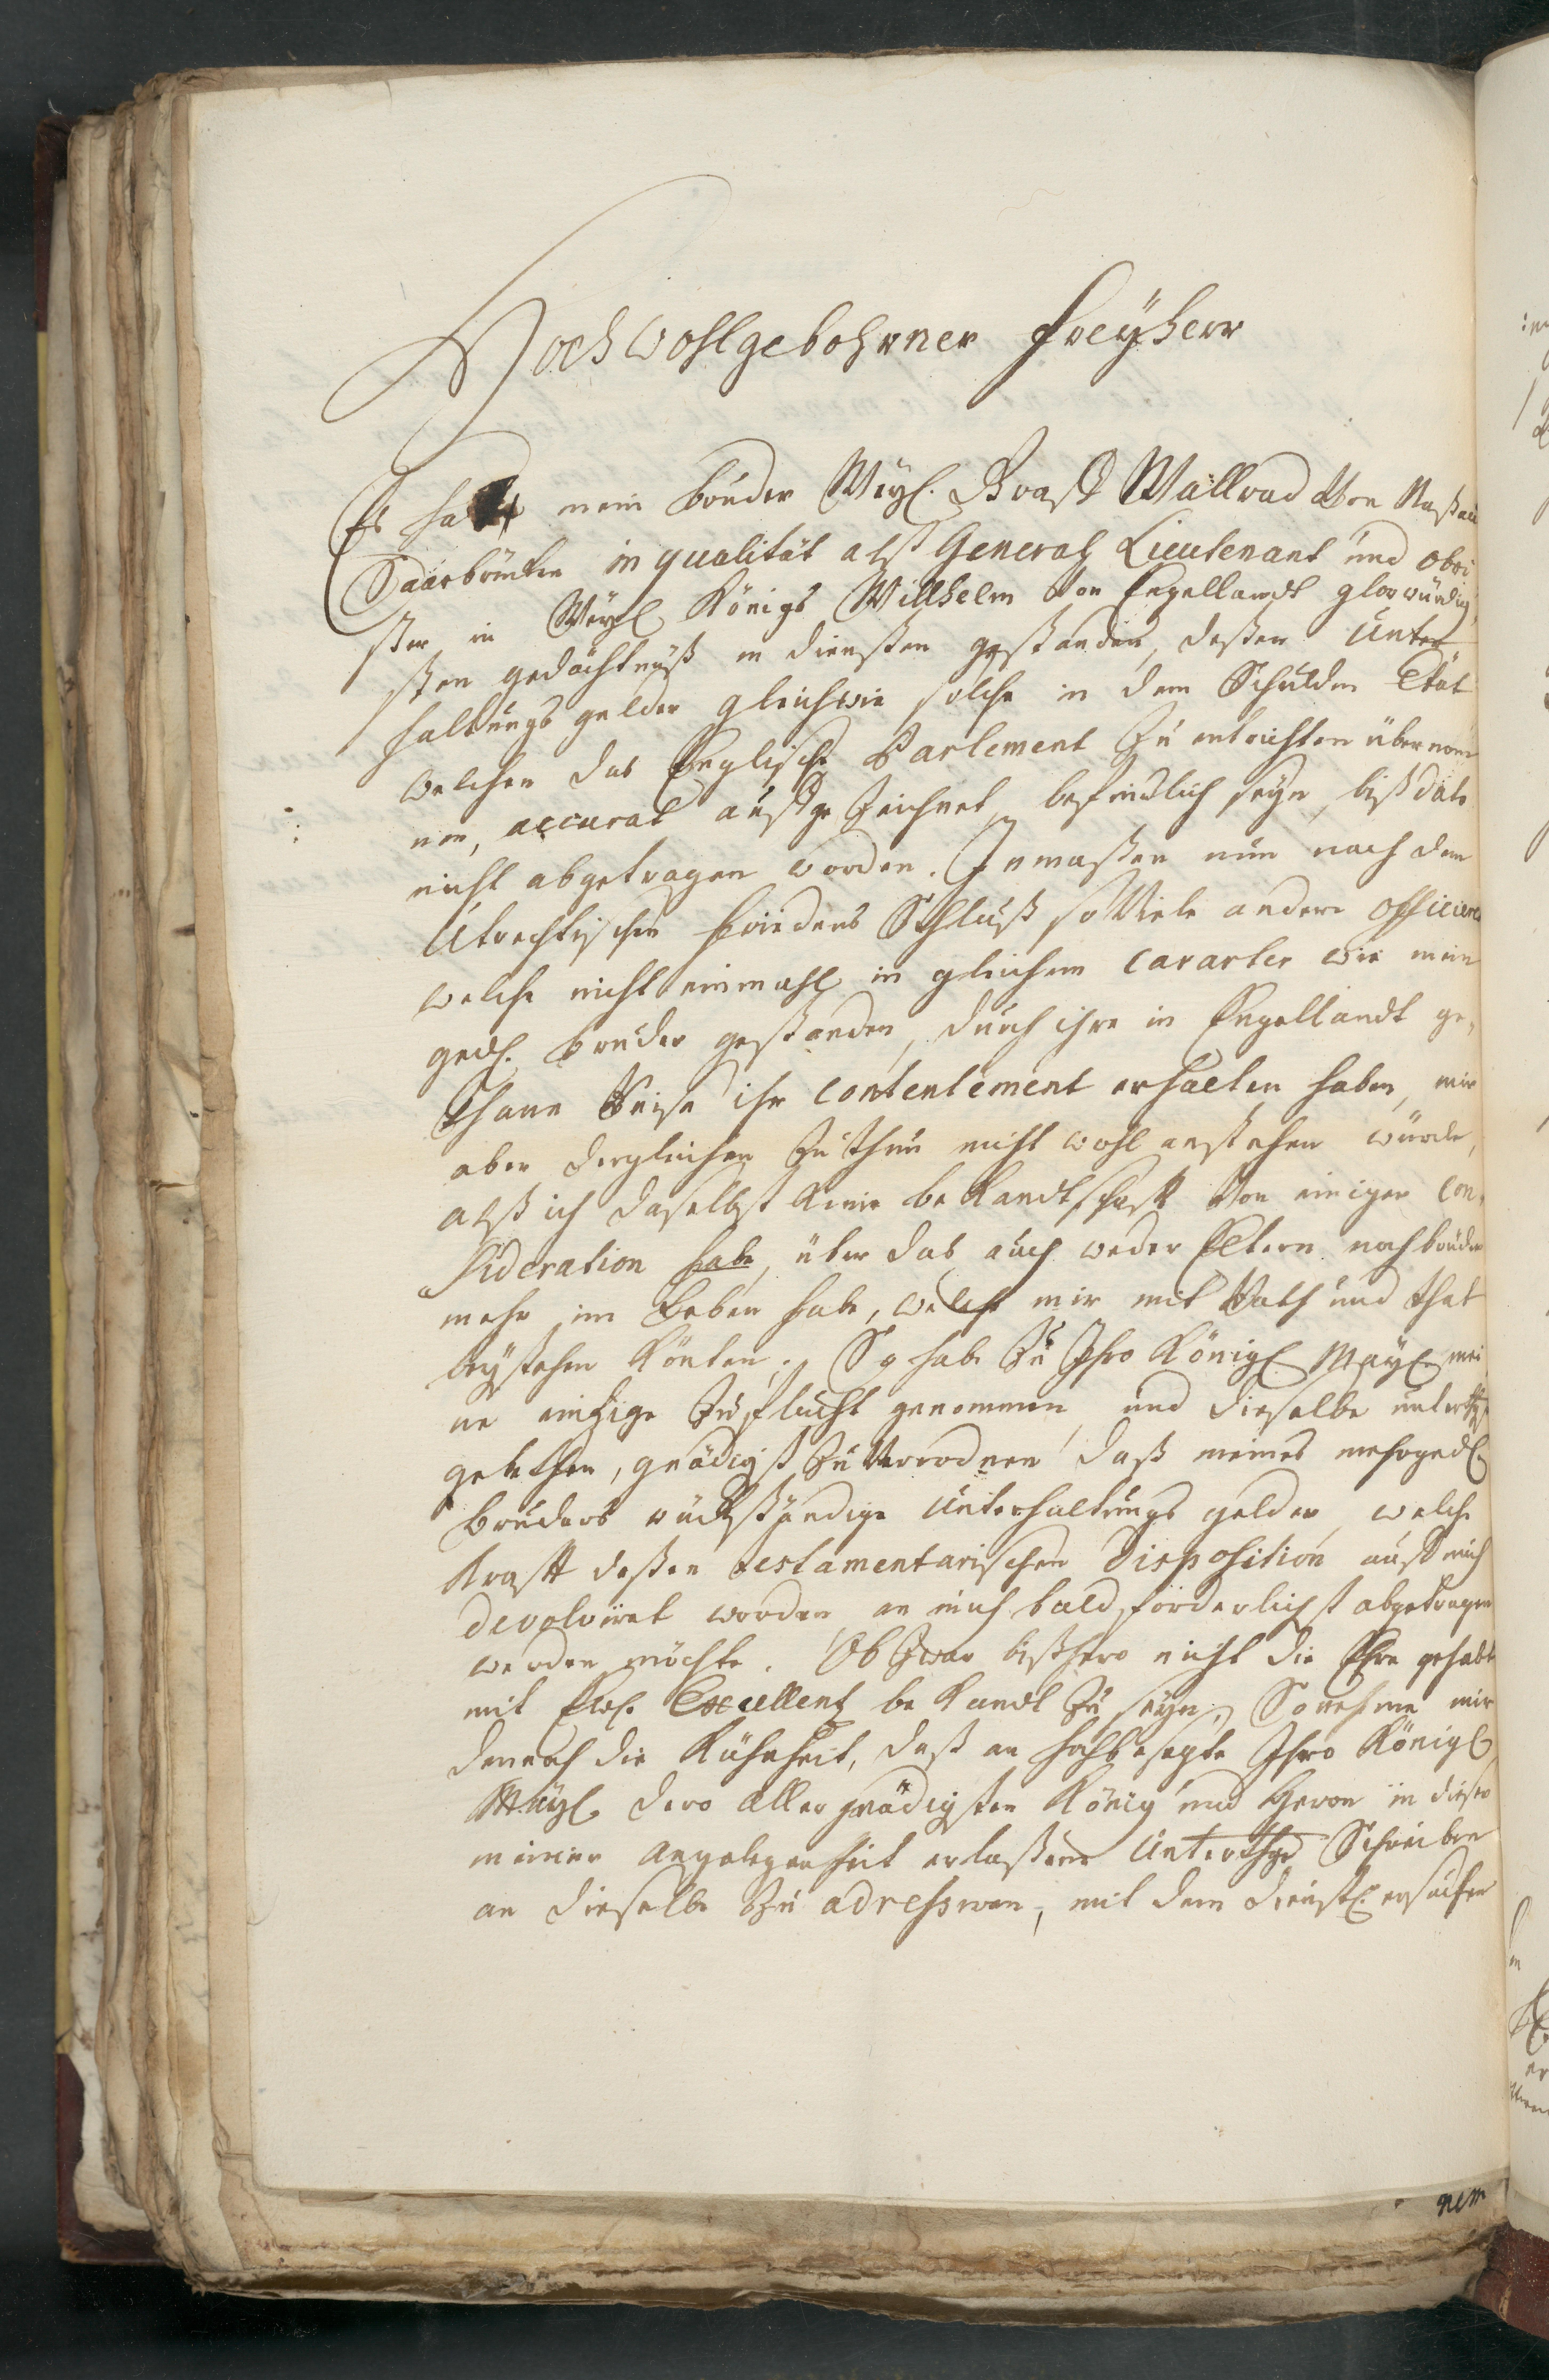 Hochwohlgebohrner Freÿherr
Es hat mein bruder Weÿl. Graff Wallrad Von Naßau
Saarbrücken in qualität alß General Lieutenant und obri
ster in Weÿl Königs Willhelm Von Engellandt glorwürdig
sten gedächtnuß in diensten gestanden, deßen Unter
haltungs gelder gleichwie solche in dem Schulden Etat
welchen das Englische Parlement Zu entrichten übernom
men, accurat außge Zeichnet befindlich seÿn, biß dato
nicht abgetragen worden. Inmaßen nun nach dem
Utrechtischen friedens Schluß so Viele andere officiere
welche nicht einmahl in gleichem caracter wie mein
gedh. bruder gestanden, durch ihre in Engellandt ge,
thane Reise ihr contentement erhalten haben, mir
aber dergleichen Zu thun nicht wohl anstehen würde,
alß ich daselbst keine bekandtschafft Von einiger con,
sideration habe, über das auch weder Eltern noch brüder
mehr im Leben habe, welche mir mit Rath und that
beÿstehen könten; So habe Zu Ihro Königl Maÿl. mei
ne eintzige Zuflucht genommen, und dieselbe unterthgst
gebethen, gnädigst Zu Verordnen daß meines mehrgedl
bruders rückständige Unterhaltungs gelder, welche
krafft deßen testamentarischen Disposition auff mich
devolviret worden, an mich baldförderlichst abgetragen
werden möchte. Ob Zwar bißhero nicht die Ehre gehabt
mit Ew. Excellentz bekandt Zu seÿn; So nehme mir
dennoch die Kühnheit, daß an hochbesagte Ihro Königl
Maÿl. dero Allergnädigsten König und Herrn in dieser
meiner angelegenheit erlaßene Unterthgd Schreiben
an dieselbe Zu adressiren, mit dem dienstl. ersuchen
nem